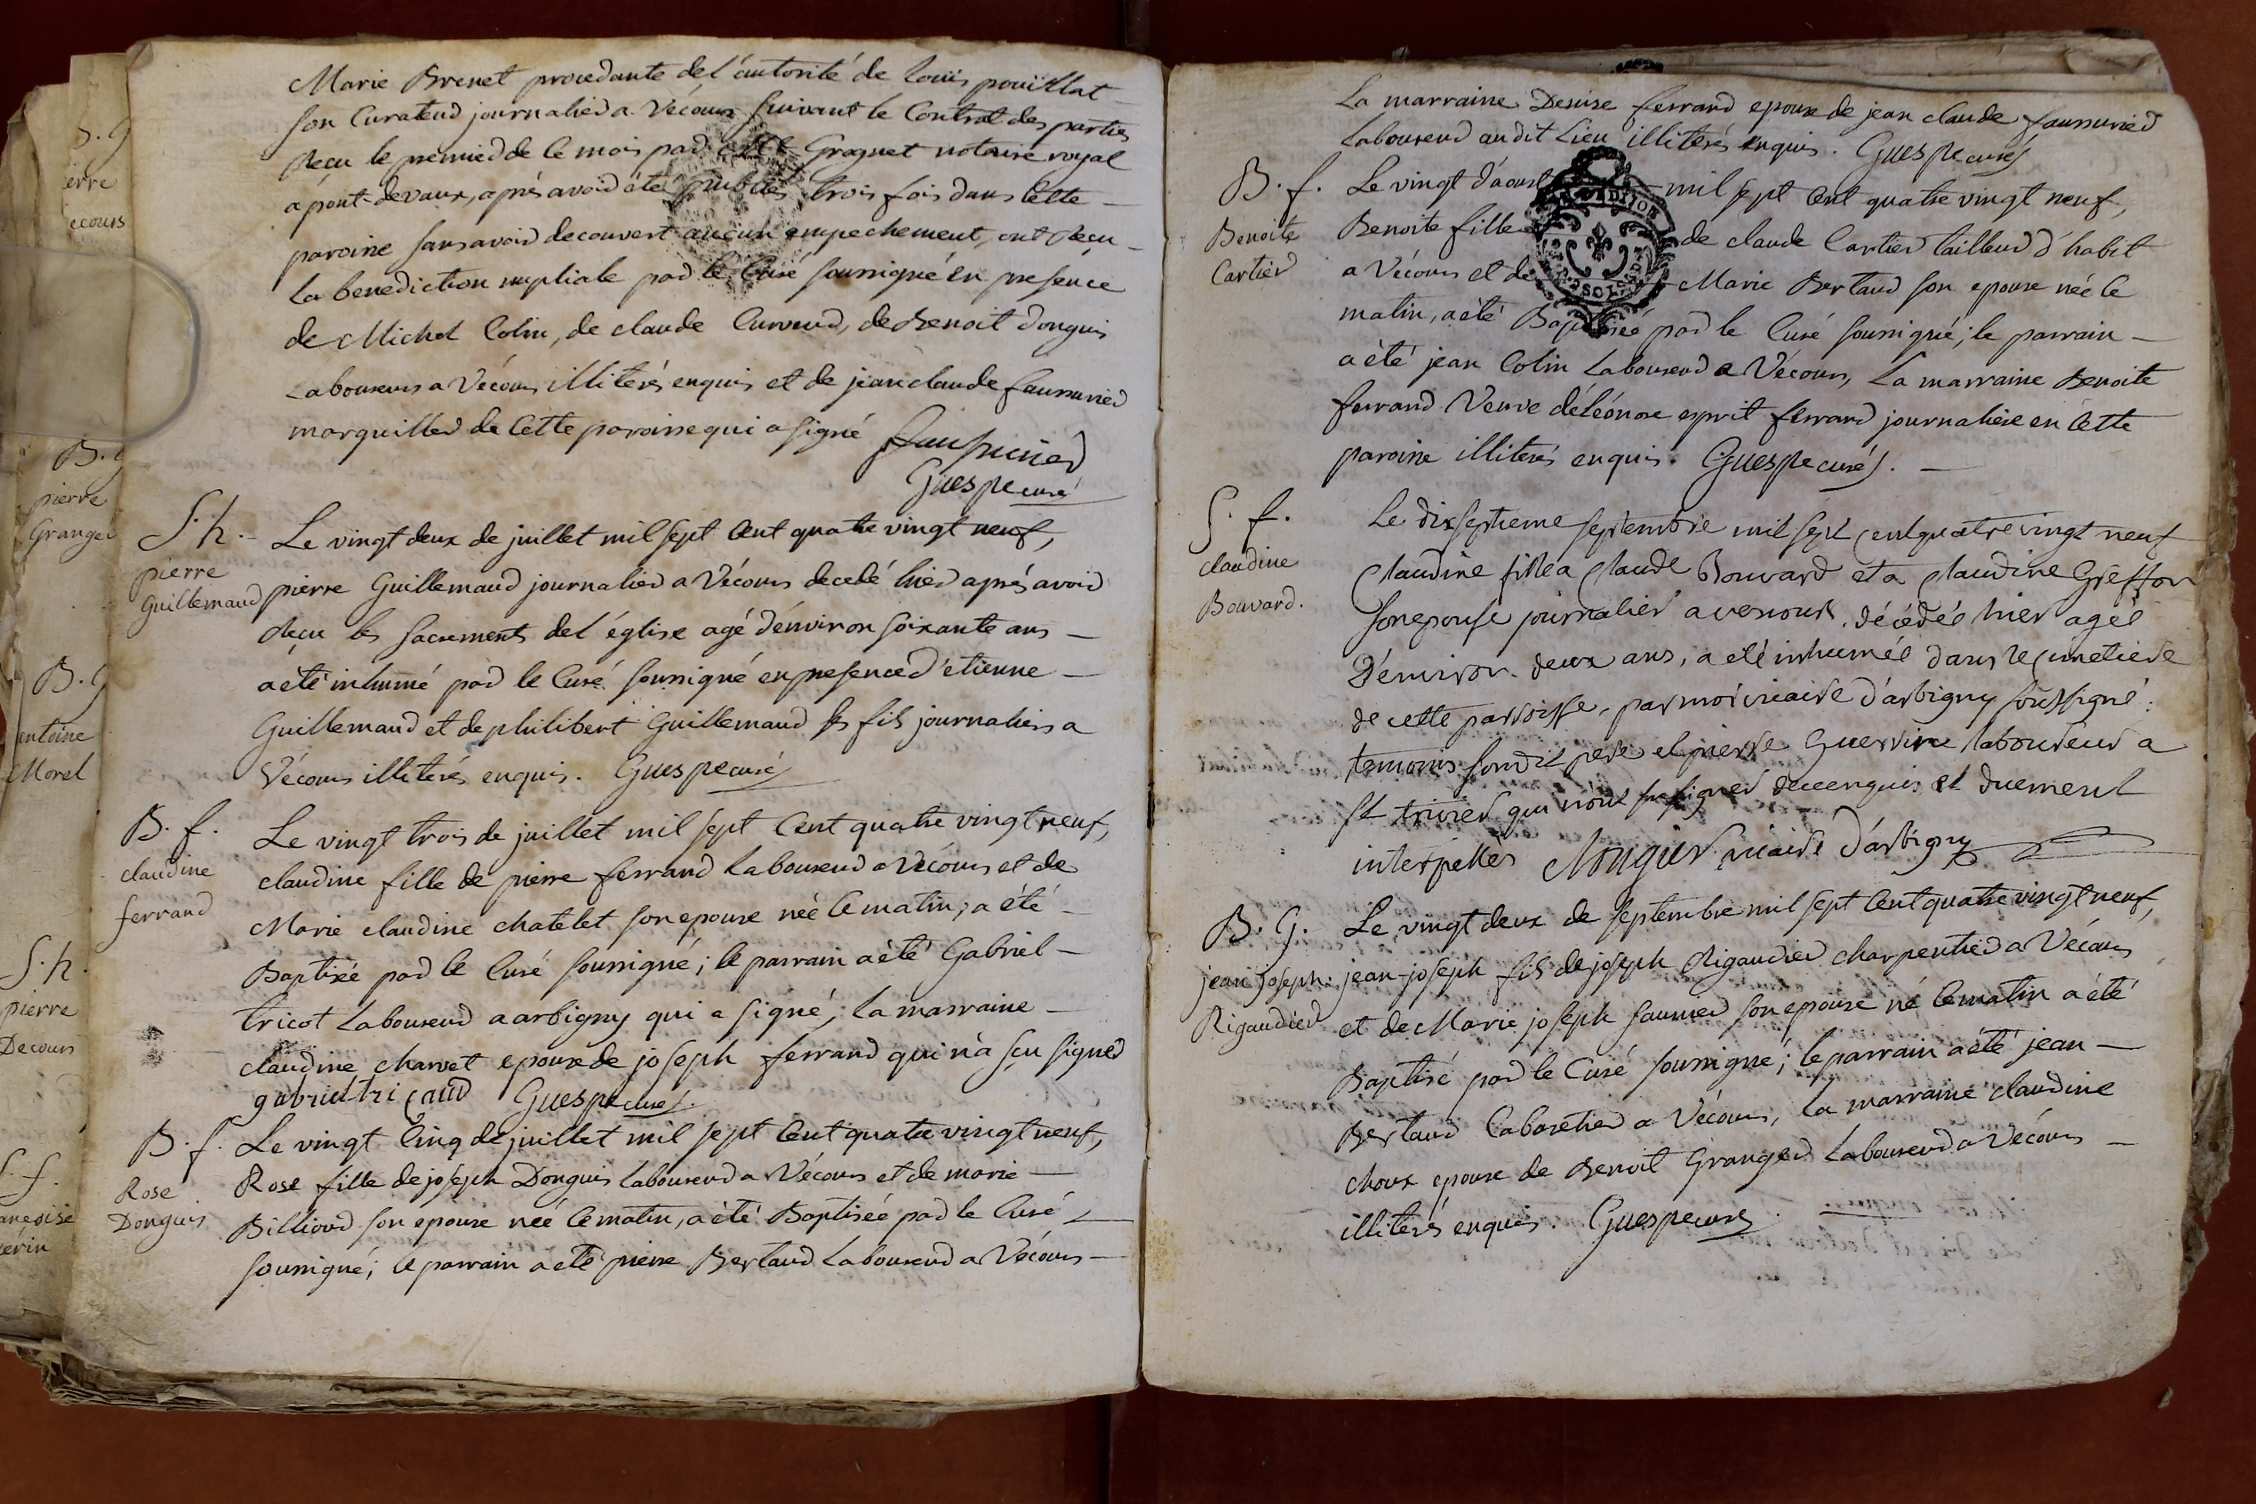 Marie Brenet procedante de l'autorité de louis pouillat
son Curateur journalier a Vécours suivant le Contrat des parties
Reçu le premier de ce mois par Grognet notaire royal
a pont-devaux, aprés avoir été publiés trois fois dans Cette
paroisse sans avoir decouvert aucun empechement, ont Reçu
La benediction nuptiale par le Curé soussigné en presence
de Michel Colin, de claude Curveur, de Benoit Donguis
Laboureurs a Vécours illiterés enquis et de jean claude faussurier
marguiller de Cette paroisse qui a signé
faussurier
Guespe curé
S. h.
pierre
Guillemaud
Le vingt deux de juillet mil sept Cent quatre vingt neuf,
pierre Guillemaud journalier a Vécours decedé hier aprés avoir
Reçu les sacrements de l'église agé d'énviron soixante ans
a été inhumé par le Curé soussigné en presence d'etienne
Guillemaud et de philibert Guillemaud ses fils journaliers a
Vécours illiterés enquis. Guespe curé
B. f.
claudine
ferrand
Le vingt trois de juillet mil sept Cent quatre vingt neuf,
claudine fille de pierre ferrand Laboureur a Vécours et de
Marie claudine chatelet son epouse née Ce matin, a été
Baptisée par le Curé soussigné; le parrain a été Gabriel
tricot Laboureur a arbigny qui a signé; la marraine
claudine charvet epouse de joseph ferrand qui n'a sçu signer
gabriel tricaud Guespe curé
B. f.
Rose
Donguis
Le vingt Cinq de juillet mil sept Cent quatre vingt neuf,
Rose fille de joseph Donguis Laboureur a Vécours et de marie
Billioud son epouse née Ce matin, a été Baptisée par le Curé
soussigné; le parrain a été pierre Bertaud Laboureur a Vécours
La marraine Desirée ferrand epouse de jean claude faussurier
Laboureur au dit Lieu illiterés enquis. Guespe curé
B. f.
Benoite
Cartier
Le vingt d'aoust mil sept Cent quatre vingt neuf,
Benoite fille de claude Cartier tailleur d'habit
a Vécours et de Marie Bertaud son epouse née le
matin, a été Baptisée par le Curé soussigné; le parrain
a été jean Colin Laboureur a Vécours, La marraine Benoite
ferrand Veuve de léonore esprit ferrand journaliere en Cette
paroisse illiterés enquis. Guespe curé.
S. f.
claudine
Bouvard.
Le dixseptieme septembre mil sept centquatre vingt neuf
Claudine fille a Claude Bouvard et a Claudine Greffon
son epouse journalier a , décédée hier agée
D'environ deux ans, a été inhumée dans le cimetiere
de cette parroisse, par moi vicaire d'arbigny soussigné:
temoins sondit pere et pierre Guerrine laboureur a
St trivier qui n'ont su signer de ce enquis et duement
interpellés Nougier vicaire d'arbigny
B. G.
jean joseph
Rigaudier
Le vingt deux de septembre mil sept Cent quatre vingt neuf,
jean-joseph fils de joseph Rigaudier charpentier a Vécours
et de Marie joseph saunier son epouse né Ce matin a été
Baptisé par le Curé soussigné; le parrain a été jean
Bertaud Cabaretier a Vécours, la marraine claudine
choux epouse de Benoit Granger Laboureur a Vécours
illiterés enquis. Guespe curé